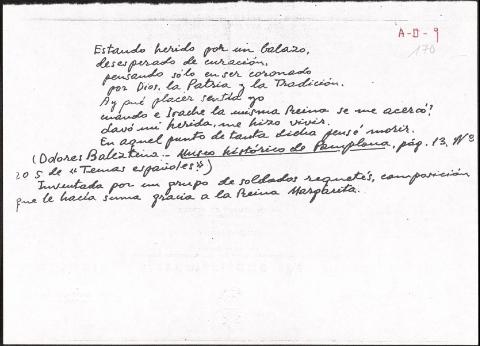 A-D-9
170
Estando herido por un balazo,
desesperado de curación,
pensando sólo en ser coronado
por Dios, la Patria y la Tradición.
Ay qué placer sentía yo
cuando e Irache la misma Reina se me acercó!
lavó mi herida, me hizo vivir.
En aquel punto de tanta dicha pensó morir.
(Dolores Baleztena - Museo histórico de Pamplona, pág. 13, nº
205 de "Temas españoles")
Inventada por un grupo de soldados requetés, composición
que le hacía suma gracia a la Reina Margarita.